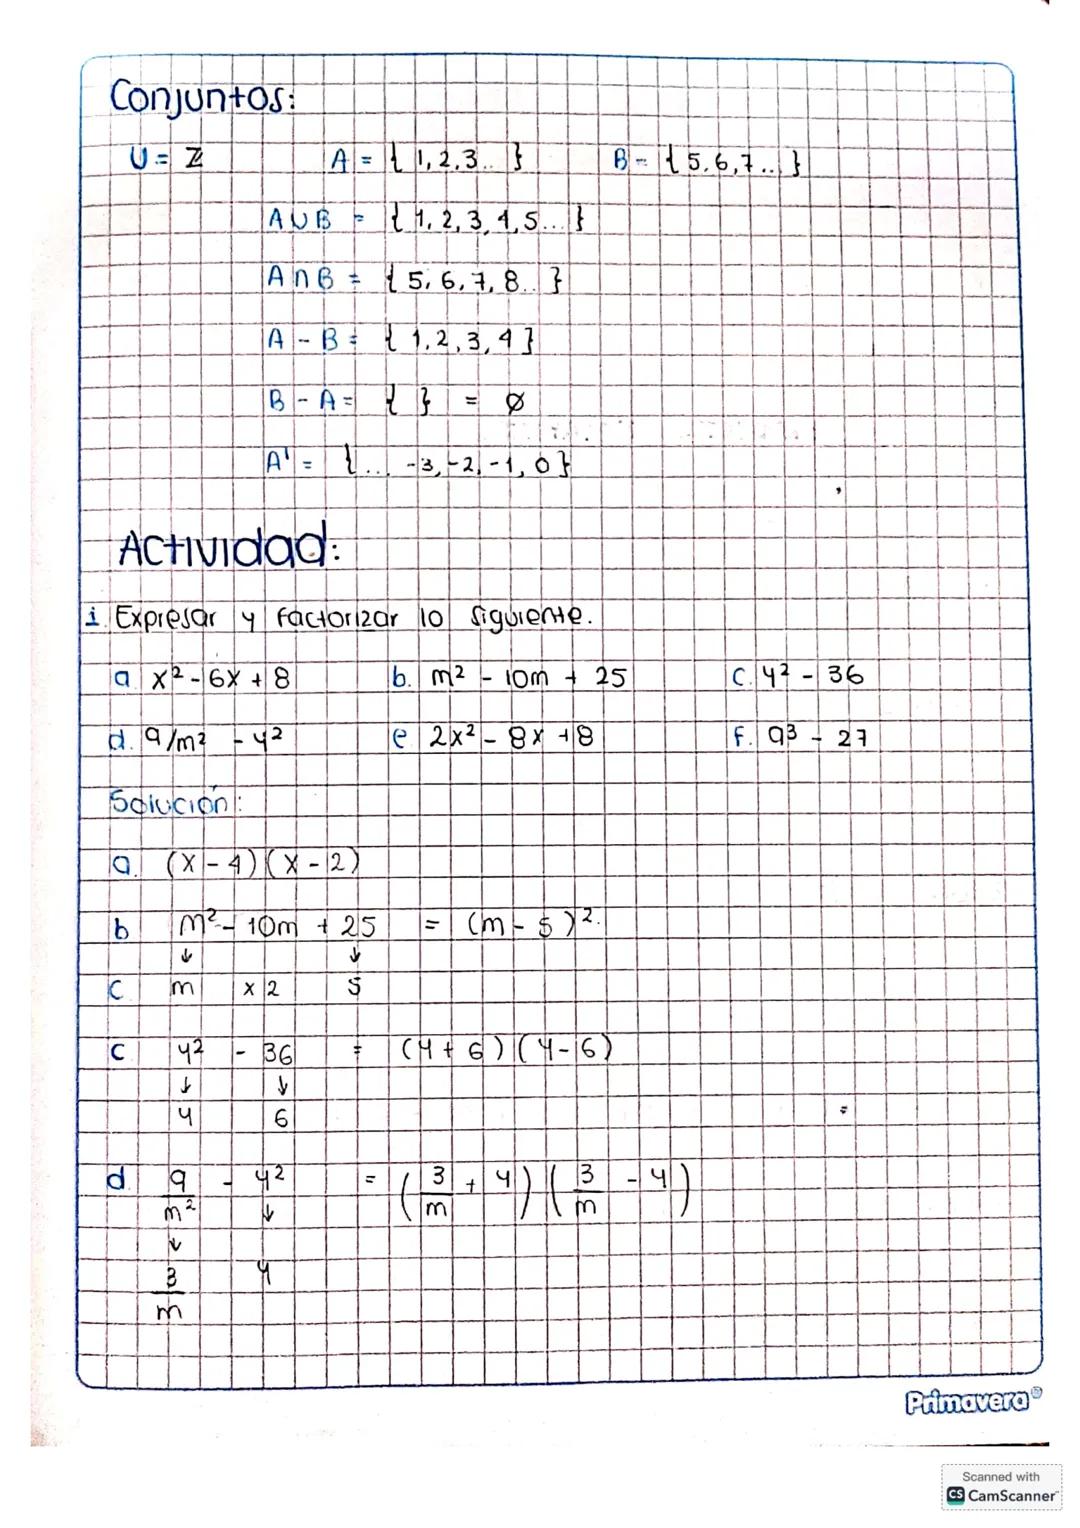 Conjuntos:
U = Z A = { 1, 2, 3... } B = { 5, 6, 7... }
A ∪ B = { 1, 2, 3, 4, 5... }
A ∩ B = { 5, 6, 7, 8... }
A - B = { 1, 2, 3, 4 }
B - A = { } = ∅
A' = { ... -3, -2, -1, 0 }
Actividad:
1. Expresar y factorizar lo siguiente.
a. x² - 6x + 8 b. m² - 10m + 25 c. y² - 36
d. 9/m² - y² e. 2x² - 8x + 8 f. a³ - 27
Solución:
a. (x - 4) (x - 2)
b m² - 10m + 25 = (m - 5)².
↓ ↓
c m x 2 5
c y² - 36 = (y + 6) (y - 6)
↓ ↓
y 6
d. 9/m² - y² = (3/m + y) (3/m - y)
↓ ↓
3/m y
Primavera®
Scanned with
CS CamScanner